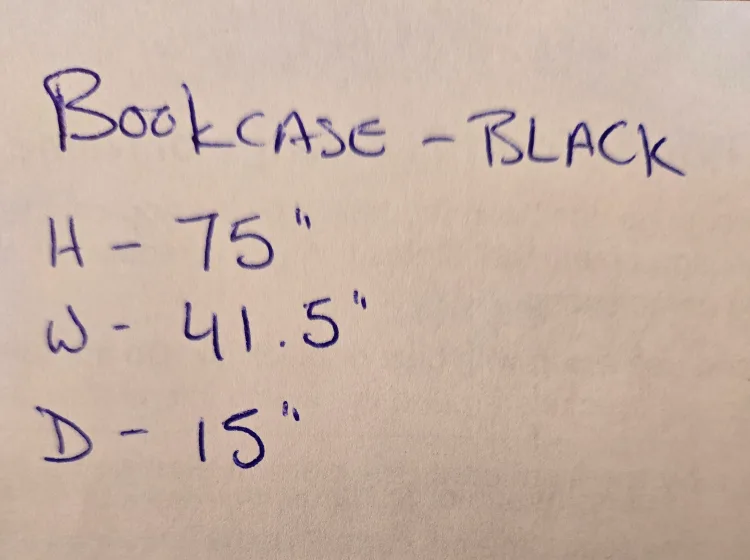 BOOKCASE - BLACK
H - 75"
W - 41.5"
D - 15"